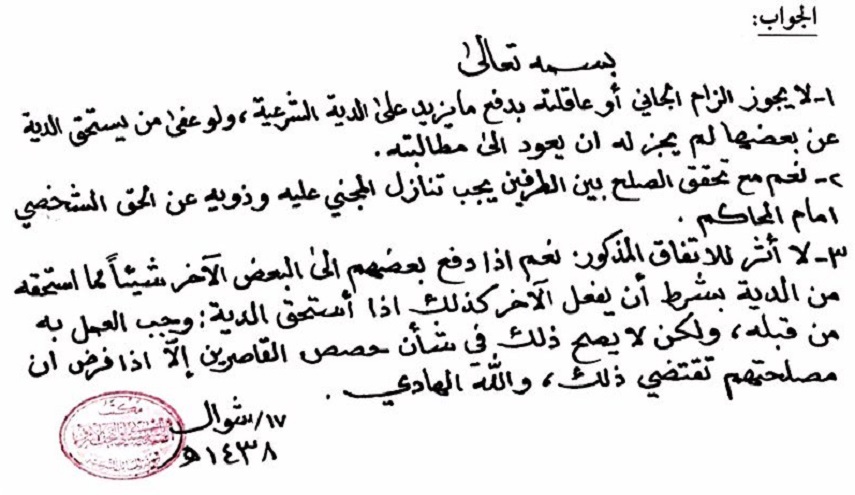 الجواب:
بسمه تعالى
١- لا يجوز الزام الجاني أو عاقلته بدفع ما يزيد على الدية الشرعية، ولو عفى من يستحق الدية
عن بعضها لم يجز له ان يعود الى مطالبته.
٢- نعم مع تحقق الصلح بين الطرفين يجب تنازل المجني عليه وذويه عن الحق الشخصي
امام المحاكم.
٣- لا أثر للاتفاق المذكور. نعم اذا دفع بعضهم الى البعض الآخر شيئاً مما استحقه
من الدية بشرط أن يفعل الآخر كذلك اذا أستحق الدية؛ وجب العمل به
من قبله، ولكن لا يصح ذلك في شأن حصص القاصرين إلّا اذا فرض ان
مصلحتهم تقتضي ذلك، والله الهادي.
١٧/شوال
١٤٣٨هـ
مكتب